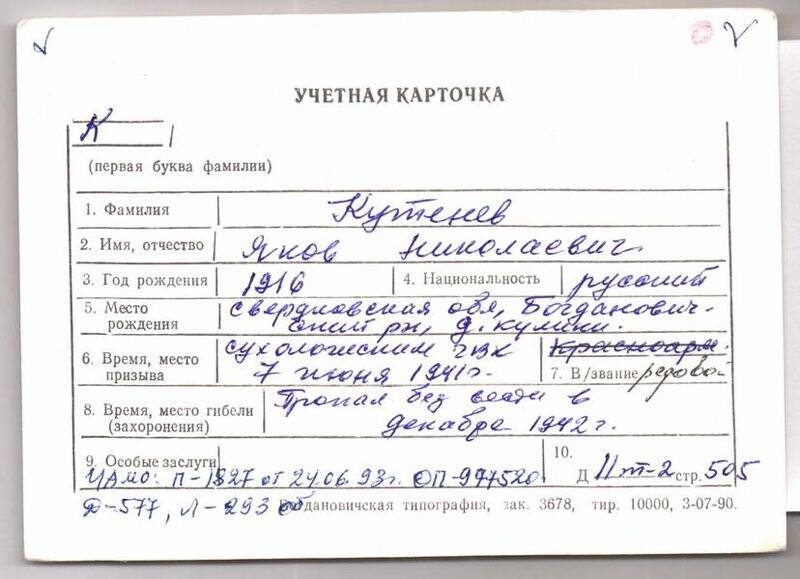 УЧЕТНАЯ КАРТОЧКА
К
(первая буква фамилии)
1. Фамилия Кутенев
2. Имя, отчество Яков Николаевич
3. Год рождения 1916 4. Национальность русский
5. Место рождения Свердловская обл, Богданович-
ский рн, д. Кулики.
6. Время, место призыва Сухоложским ГВК
7 июня 1941г. Красноарм.
7. В/звание рядовой
8. Время, место гибели (захоронения) Пропал без вести в
декабре 1942 г.
9. Особые заслуги 10.
ЦАМО: П-1827 от 24.06.93г. ОП-977520 Д 11т-2 стр. 505
Д-577, Л-293 об Богдановичская типография, зак. 3678, тир. 10000, 3-07-90.